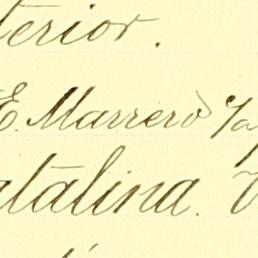 terior.
E. Marrero
atalina.